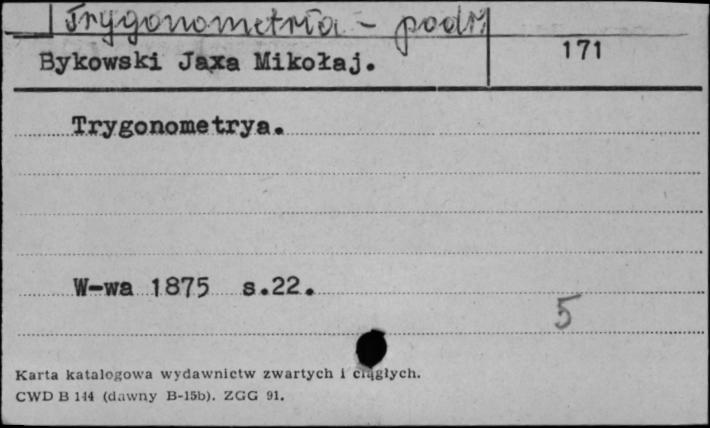 Trygonometria - podr
Bykowski Jaxa Mikołaj.
171
Trygonometrya.
W-wa 1875 s.22.
5
Karta katalogowa wydawnictw zwartych i ciągłych.
CWD B 144 (dawny B-15b). ZGG 91.